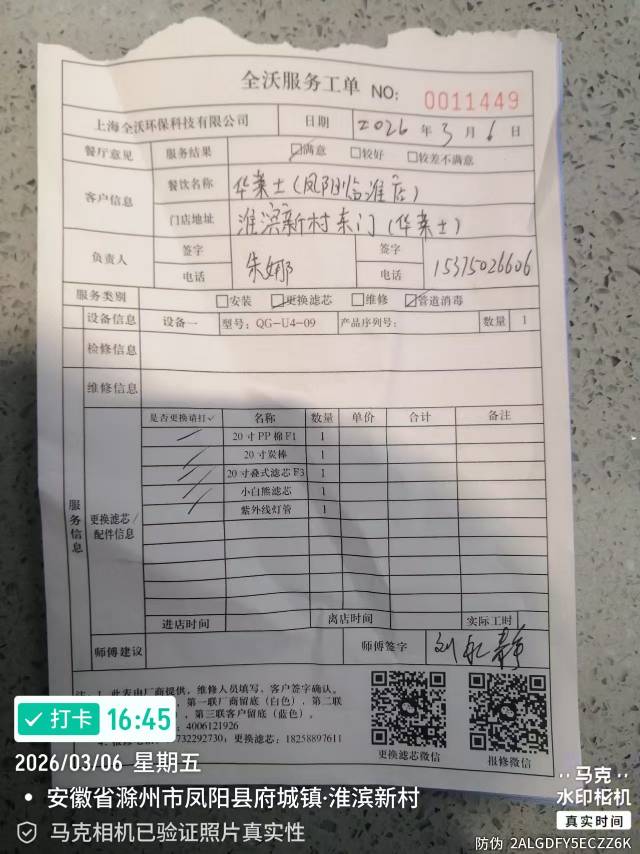 全沃服务工单 NO: 0011449
上海全沃环保科技有限公司 日期 2026 年 3 月 6 日
餐厅意见 服务结果 ☑满意 □较好 □较差不满意
客户信息 餐饮名称 华莱士(凤阳临淮店)
门店地址 淮滨新村东门(华莱士)
负责人 签字 朱娜 签字
电话 电话 15375026606
服务类别 □安装 ☑更换滤芯 □维修 ☑管道消毒
设备信息 设备一 型号: QG-U4-09 产品序列号: 数量 1
检修信息
维修信息
服务信息 更换滤芯/配件信息
是否更换请打✓ 名称 数量 单价 合计 备注
20寸PP棉F1 1
20寸炭棒 1
20寸叠式滤芯F3 1
小白熊滤芯 1
紫外线灯管 1
进店时间 离店时间 实际工时
师傅建议 师傅签字
注 1、此表由厂商提供,维修人员填写,客户签字确认。
第一联厂商留底(白色)、第二联
、第三联客户留底(蓝色)。
4006121926
732292730; 更换滤芯: 18258897611
更换滤芯微信 报修微信
打卡 16:45
2026/03/06 星期五
安徽省滁州市凤阳县府城镇·淮滨新村
马克相机已验证照片真实性
马克
水印相机
真实时间
防伪 2ALGDFY5ECZZ6K